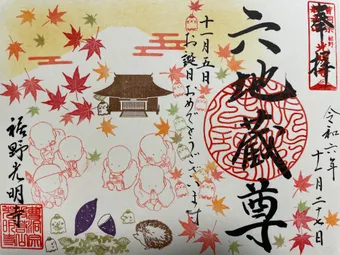 奉拝
令和六年
十一月二十七日
六地蔵尊
十一月五日
お誕日おめでとうございます
裾野光明寺